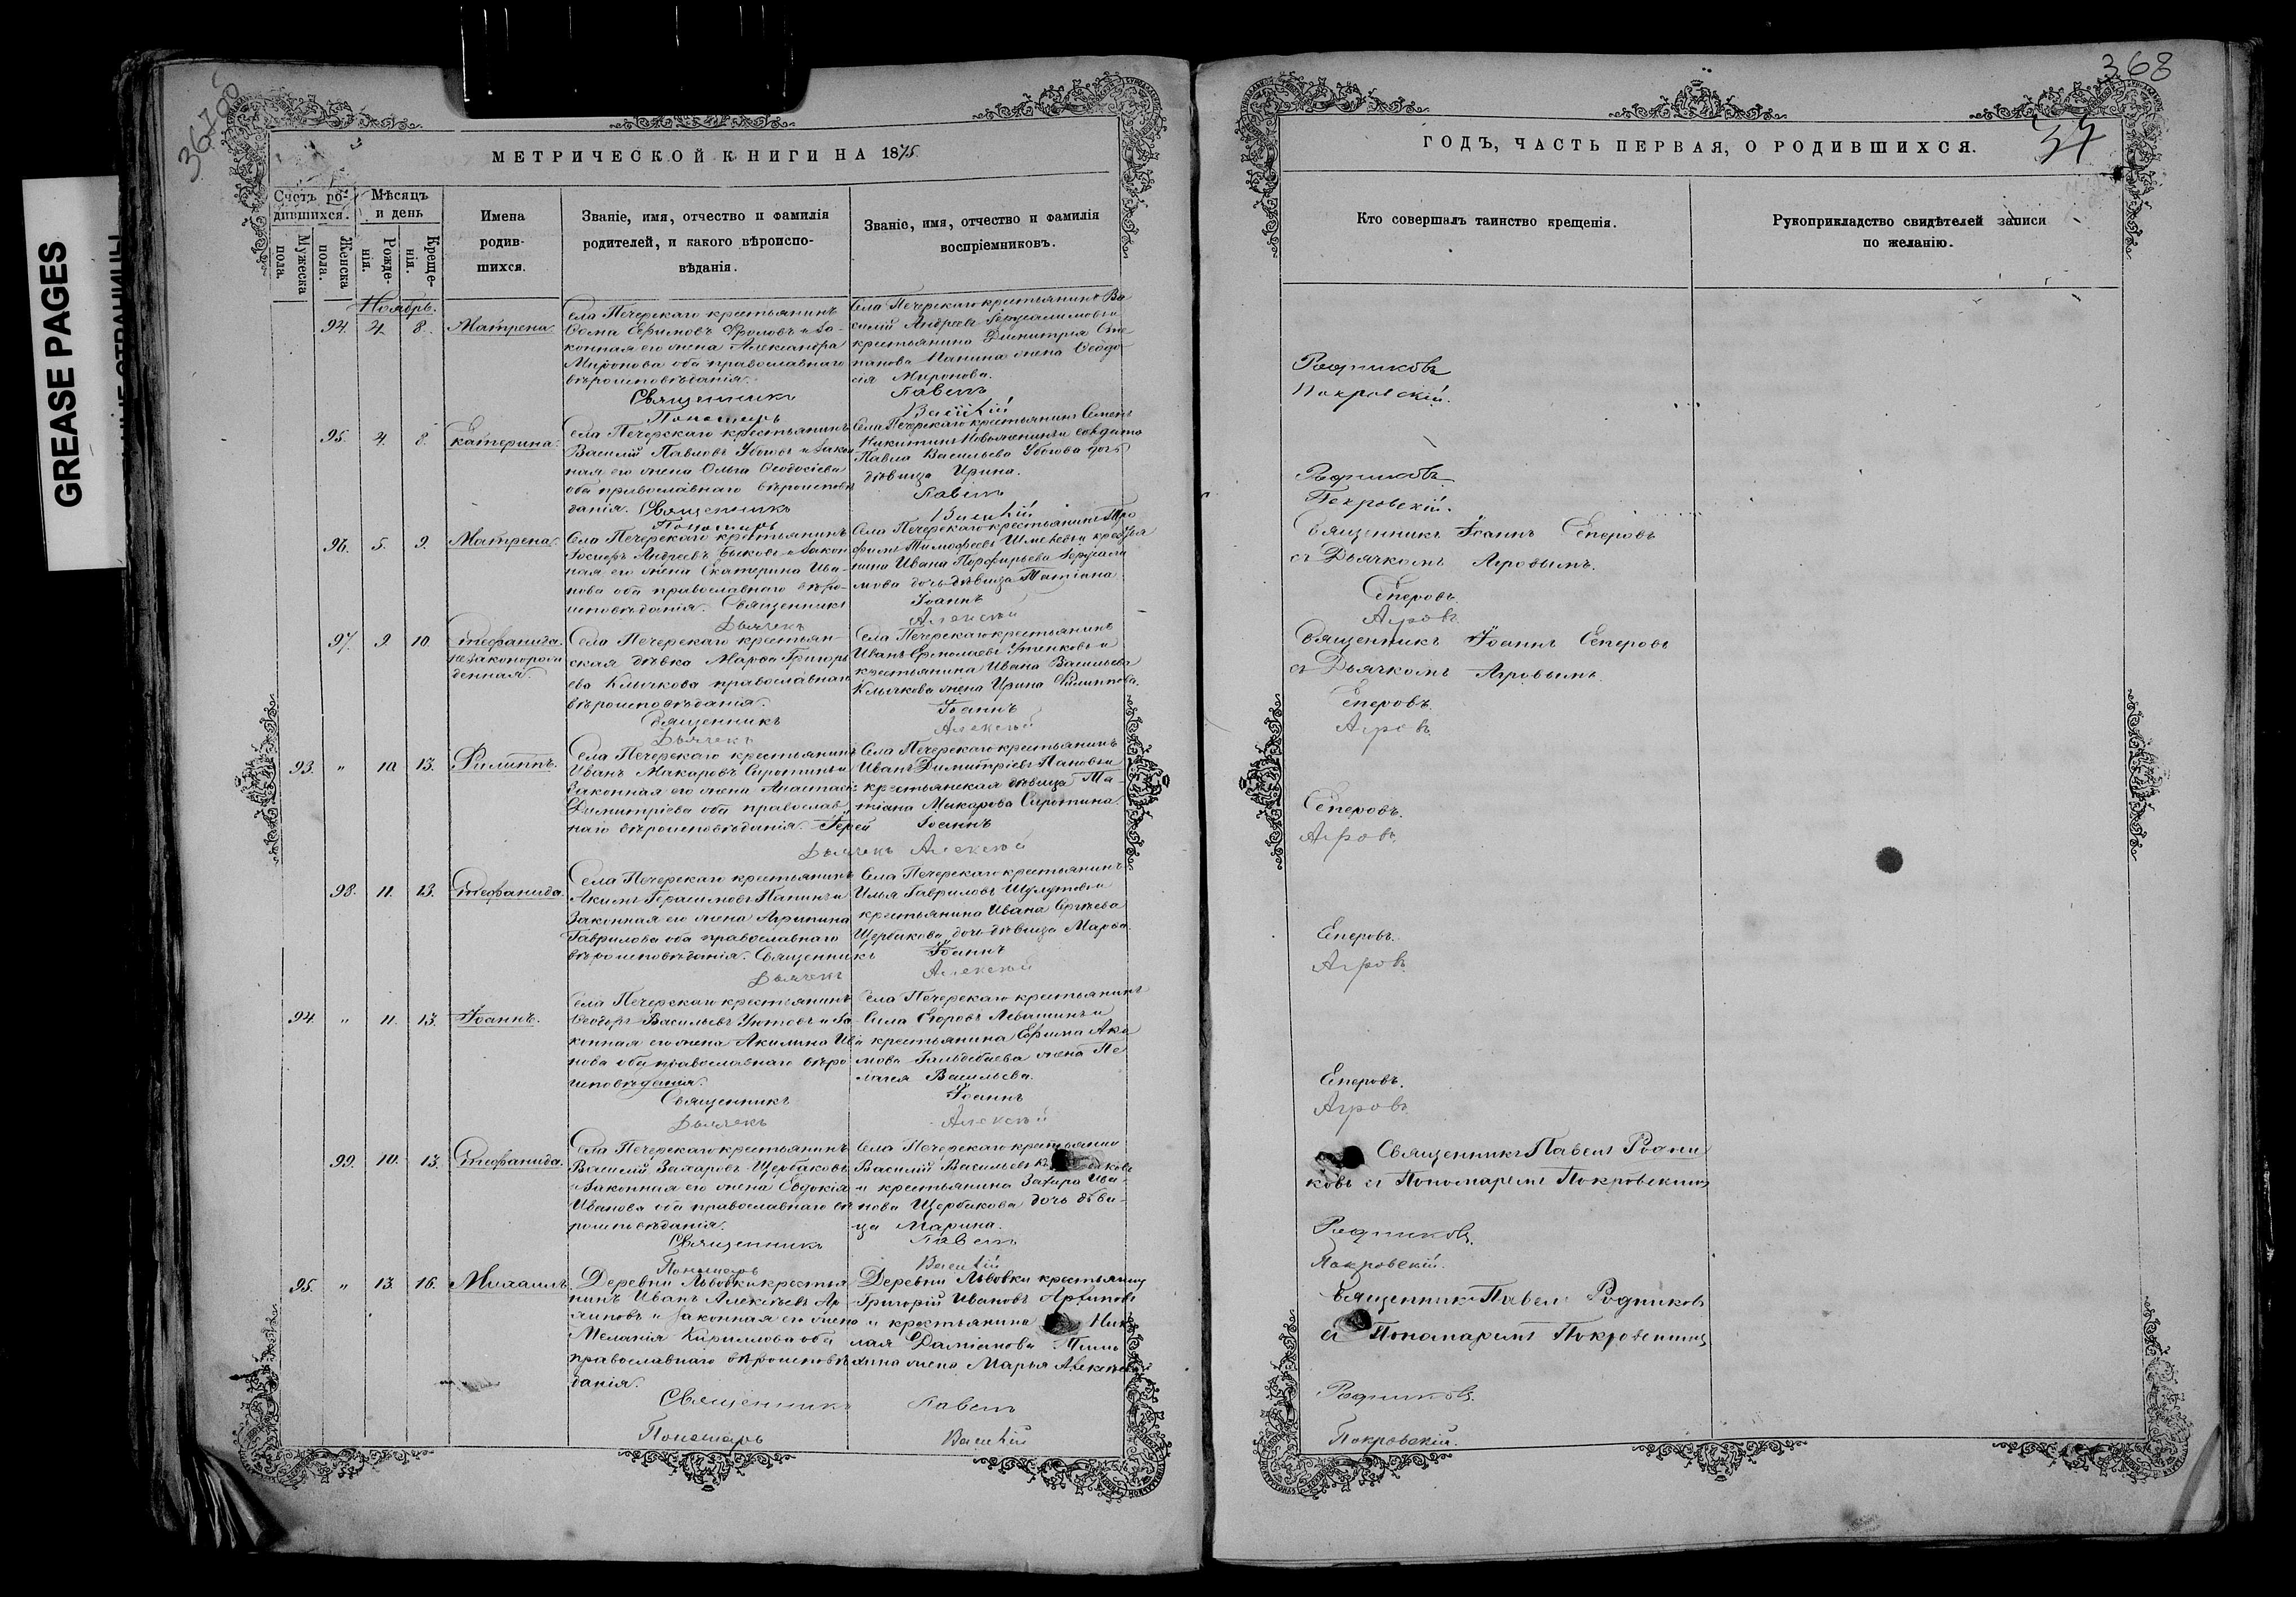 GREASE PAGES
368
34
МЕТРИЧЕСКОЙ КНИГИ НА 1875
Счетъ ро-
дившихся.
Мужеска
пола.
Женска
пола.
Мѣсяцъ
и день
Рожде-
нія.
Креще-
нія.
Имена
родив-
шихся.
Званіе, имя, отчество и фамилія
родителей, и какого вѣроиспо-
вѣданія.
Званіе, имя, отчество и фамилія
воспріемниковъ.
Ноябрь.
94. 4. 8. Матрена.
Села Печерскаго крестьянинъ
Ѳома Ефимовъ Фроловъ и за-
конная его жена Александра
Миронова оба православнаго
вѣроисповѣданія.
Священникъ
Пономарь
Села Печерскаго крестьянинъ Ва
силій Андреевъ и
крестьянина Димитрія Сте
панова Панина жена Ѳеодо
сія Миронова.
Павелъ
Василій
95. 4. 8. Екатерина.
Села Печерскаго крестьянинъ
Василій Павловъ Убоговъ и закон
ная его жена Ольга Ѳеодосіева
оба православнаго вѣроисповѣ
данія. Священникъ
Пономарь
Села Печерскаго крестьянинъ Семенъ
Никитинъ и солдата
Павла Васильева Убогова дочь
дѣвица Ирина.
Павелъ
Василій
96. 5. 9. Матрена.
Села Печерскаго крестьянинъ
Іосифъ Андреевъ Быковъ и закон
ная его жена Екатерина Ива-
нова оба православнаго вѣро-
исповѣданія. Священникъ
Дьячекъ
Села Печерскаго крестьянинъ Тро
фимъ Тимофеевъ и кресть
нина Ивана Порфирьева
мова дочь дѣвица Татіана
Іоаннъ
Алексѣй
97. 9. 10. Стефанида.
незаконорож
денная.
Села Печерскаго крестьян-
ская дѣвка Марѳа Григорь
ева Клычкова православнаго
вѣроисповѣданія.
Священникъ
Дьячекъ
Села Печерскаго крестьянинъ
Иванъ Ермолаевъ и
крестьянина Ивана Васильева
Клычкова жена Ирина Филиппова.
Іоаннъ
Алексѣй
93. " 10. 13. Филиппъ.
Села Печерскаго крестьянинъ
Иванъ Макаровъ Сиротинъ и
законная его жена Анастасія
Димитріева оба православ
наго вѣроисповѣданія. Іерей
Дьячекъ
Села Печерскаго крестьянинъ
Иванъ Димитріевъ Пановъ и
крестьянская дѣвица Та-
тіана Макарова Сиротина.
Іоаннъ
Алексѣй
98. 11. 13. Стефанида.
Села Печерскаго крестьянинъ
Акимъ Герасимовъ Панинъ и
законная его жена Агрипина
Гаврилова оба православнаго
вѣроисповѣданія. Священникъ
Дьячекъ
Села Печерскаго крестьянинъ
Илья Гавриловъ и
крестьянина Ивана Сергѣева
Щербакова дочь дѣвица Марѳа.
Іоаннъ
Алексѣй
94. " 11. 13. Іоаннъ.
Села Печерскаго крестьянинъ
Ѳеодоръ Васильевъ и за-
конная его жена Акилина Ива
нова оба православнаго вѣро
исповѣданія.
Священникъ
Дьячекъ
Села Печерскаго крестьянинъ
Сила Егоровъ Левашинъ и
крестьянина Ефима Аки
мова жена Пе
лагея Васильева.
Іоаннъ
Алексѣй
99. 10. 13. Стефанида.
Села Печерскаго крестьянинъ
Василій Захаровъ Щербаковъ
и законная его жена Евдокія
Иванова оба православнаго вѣ
роисповѣданія.
Священникъ
Пономарь
Села Печерскаго крестьянин
Василій Васильевъ
и крестьянина Захара Ива-
нова Щербакова дочь дѣви-
ца Марина.
Павелъ
Василій
95. " 13. 16. Михаилъ.
Деревни Львовки крестья
нинъ Иванъ Алексѣевъ Ар
хиповъ и законная его жена
Меланія Кириллова оба
православнаго вѣроисповѣ
данія.
Священникъ
Пономарь
Деревни Львовки крестьянинъ
Григорій Ивановъ Архиповъ
и крестьянина Ник
лая Даміанова
жена Марья Алексѣева
Павелъ
Василій
ГОДЪ, ЧАСТЬ ПЕРВАЯ, О РОДИВШИХСЯ.
Кто совершалъ таинство крещенія.
Рукоприкладство свидѣтелей записи
по желанію.
Родниковъ
Покровскій.
Родниковъ.
Покровскій.
Священникъ Іоаннъ Сеперовъ
съ Дьячкомъ Агровымъ.
Сеперовъ.
Агровъ.
Священникъ Іоаннъ Сеперовъ
съ Дьячкомъ Агровымъ.
Сеперовъ.
Агровъ.
Сеперовъ.
Агровъ.
Сеперовъ.
Агровъ.
Сеперовъ.
Агровъ.
Священникъ Павелъ Родни
ковъ съ Пономаремъ Покровскимъ
Родниковъ.
Покровскій.
Священникъ Павелъ Родниковъ
съ Пономаремъ Покровскимъ
Родниковъ.
Покровскій.